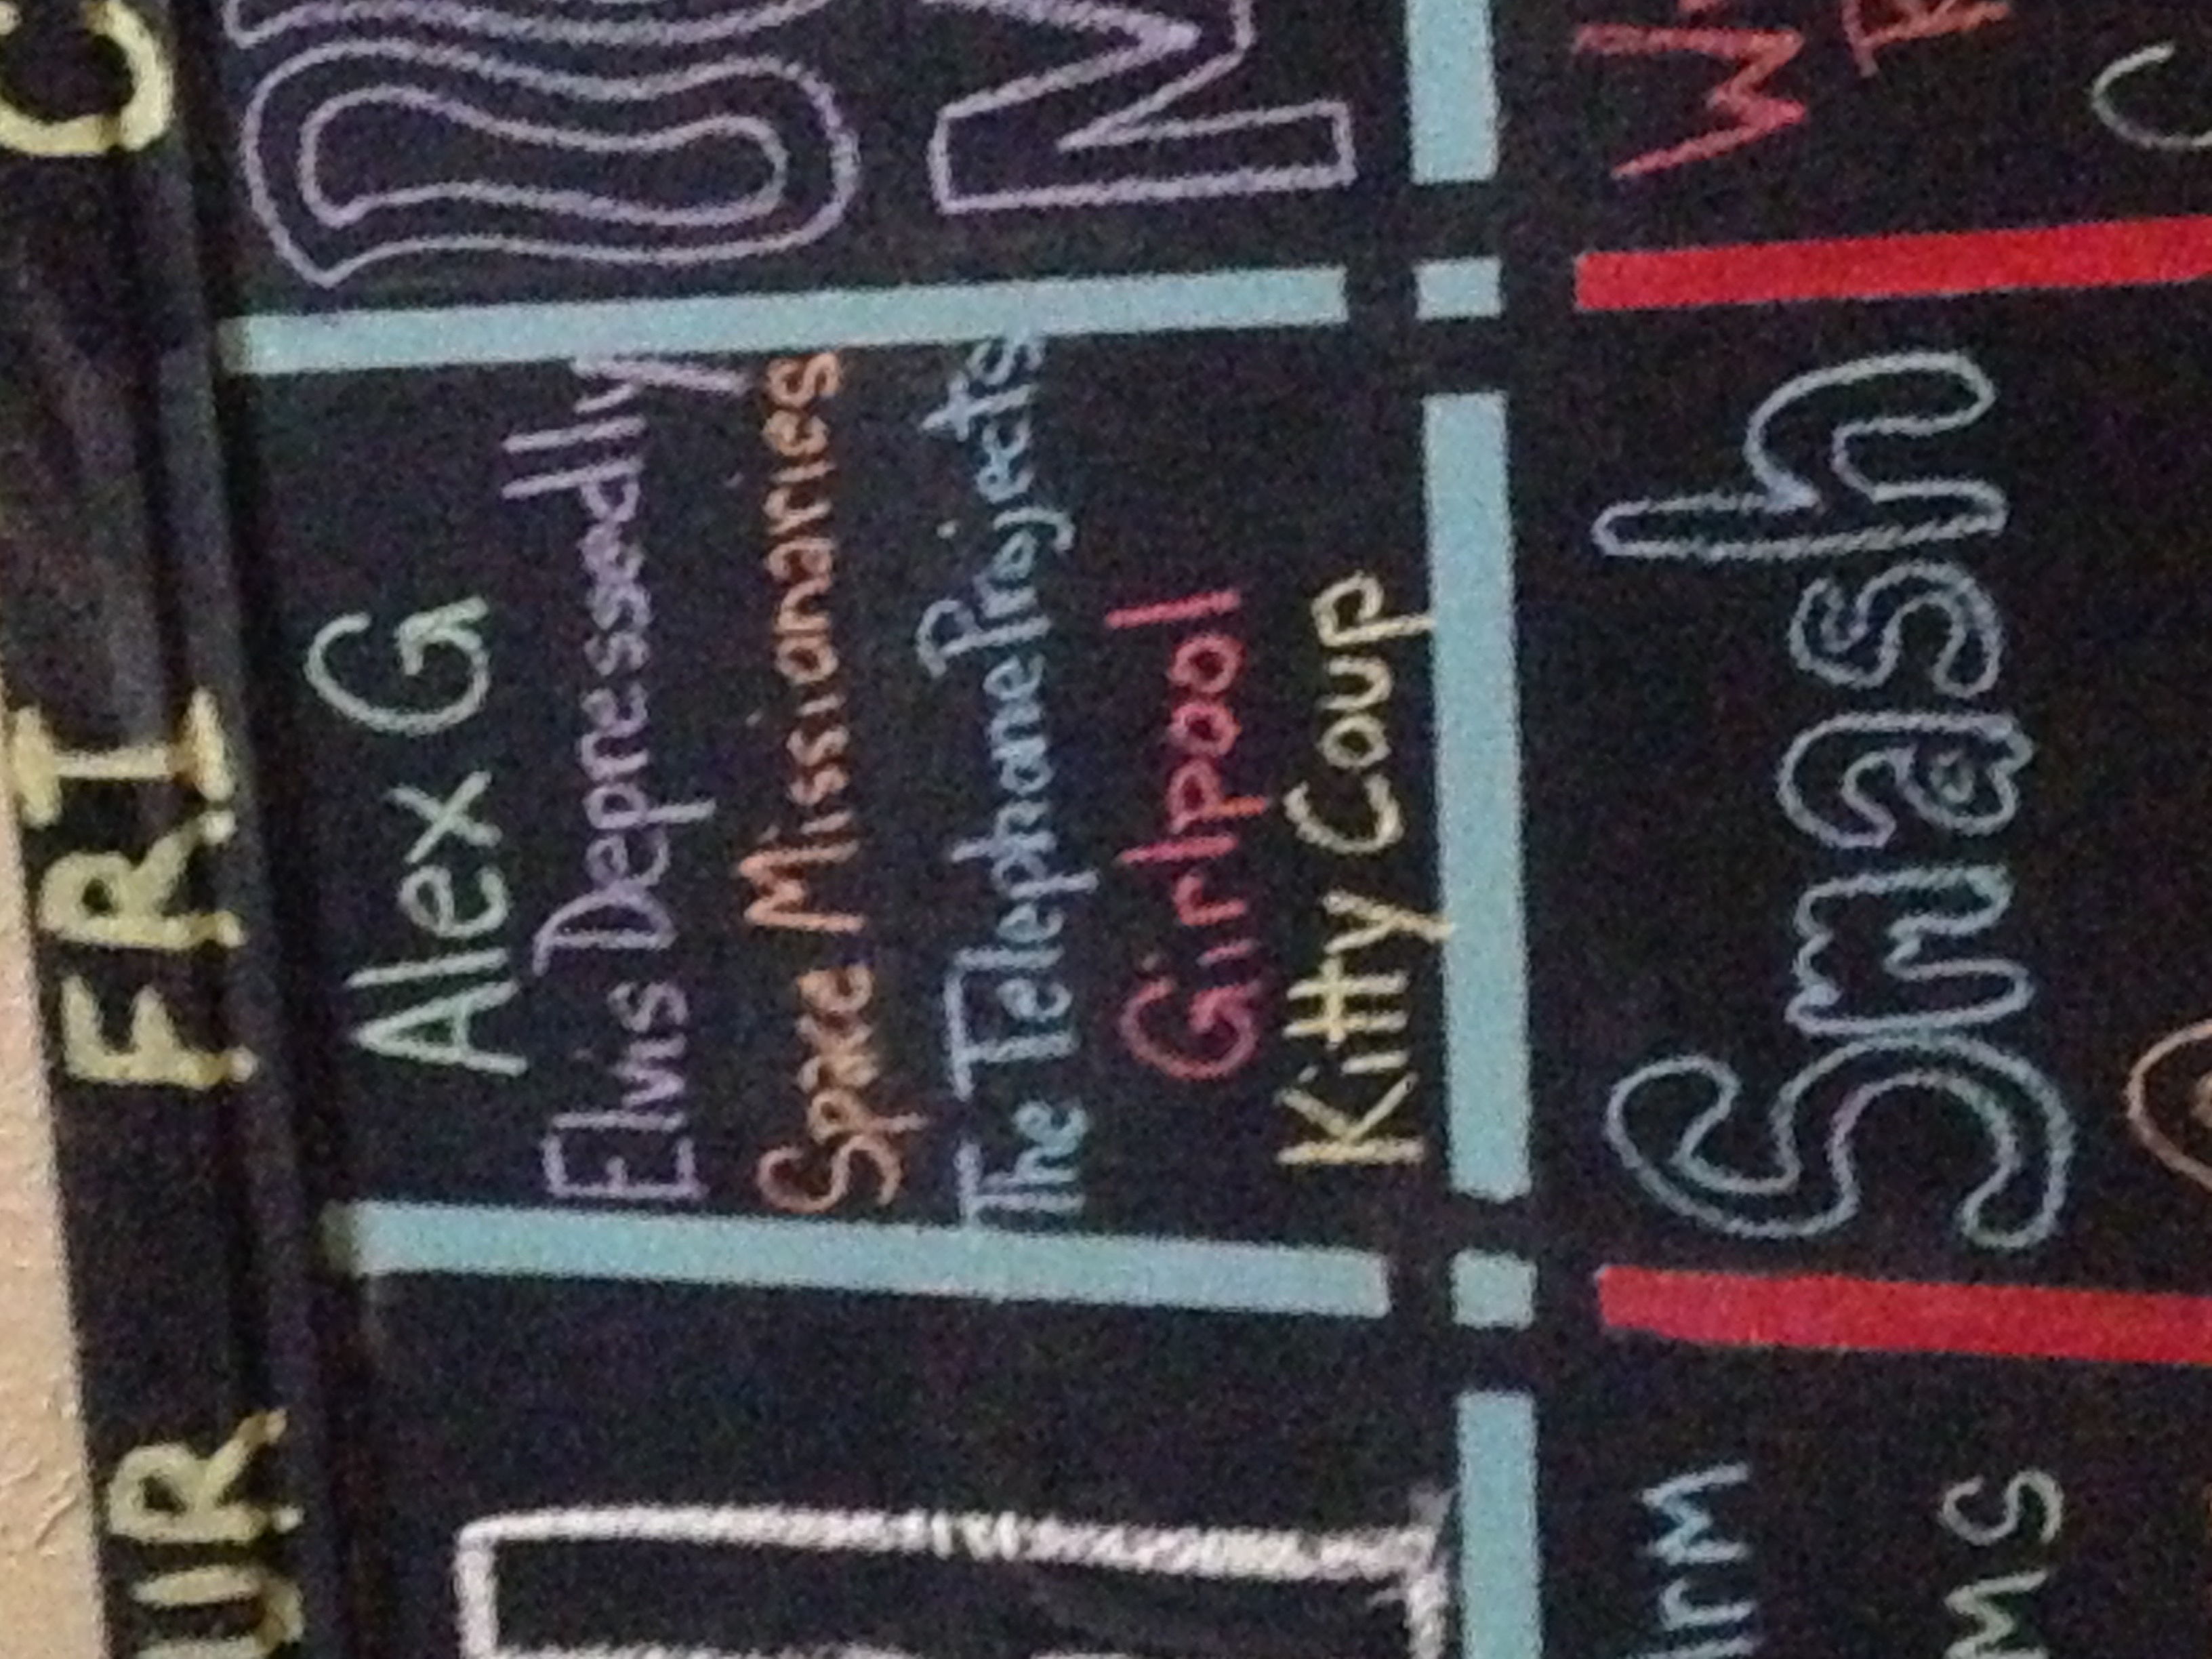 UR FRI
Alex G
Elvis Depressedly
Space Missionaries
The Telephone Projects
Girlpool
Kitty Coup
Smash